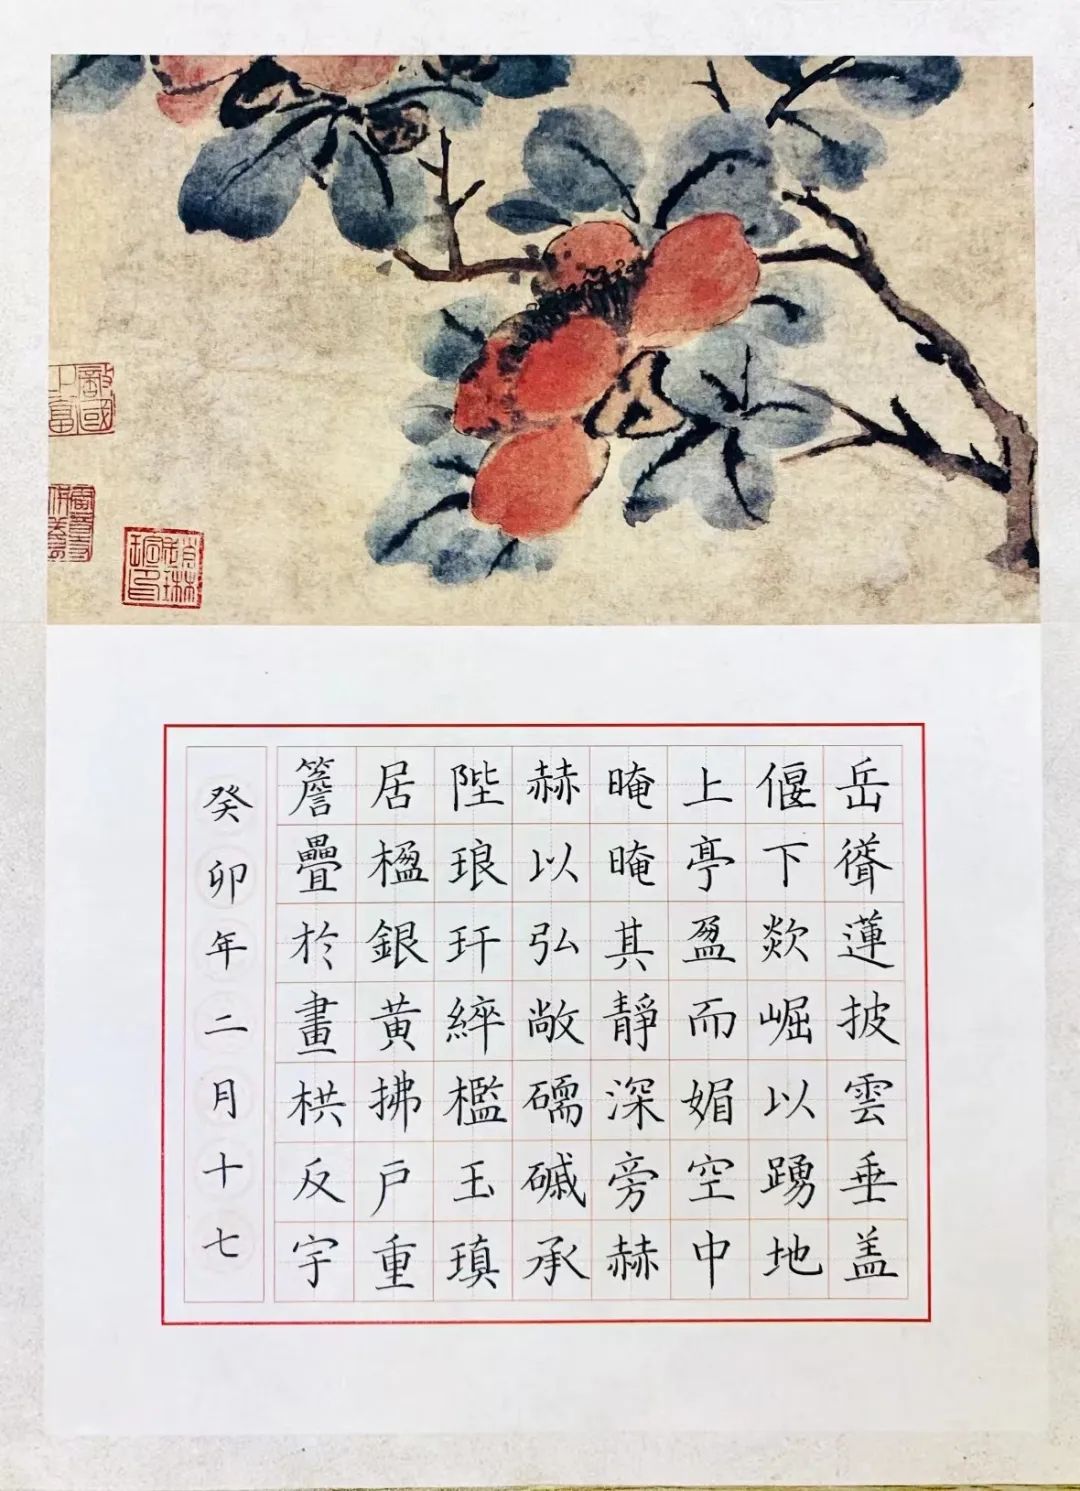 岳聳蓮披雲垂盖
偃下欻崛以踴地
上亭盈而媚空中
晻晻其靜深旁赫
赫以弘敞礝磩承
陛琅玕綷檻玉瑱
居楹銀黄拂戶重
簷疊於畫栱反宇
癸卯年二月十七